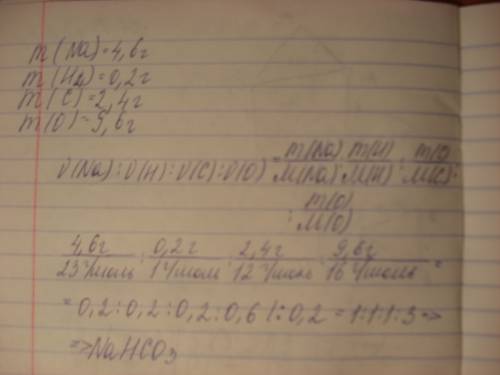 m(Na)=4,6г
m(H)=0,2г
m(C)=2,4г
m(O)=9,6г
ν(Na):ν(H):ν(C):ν(O)=m(Na)/M(Na):m(H)/M(H):m(C)/M(C):
:m(O)/M(O)
4,6г/23г/моль:0,2г/1г/моль:2,4г/12г/моль:9,6г/16г/моль=
=0,2:0,2:0,2:0,6 |:0,2=1:1:1:3=>
=>NaHCO₃